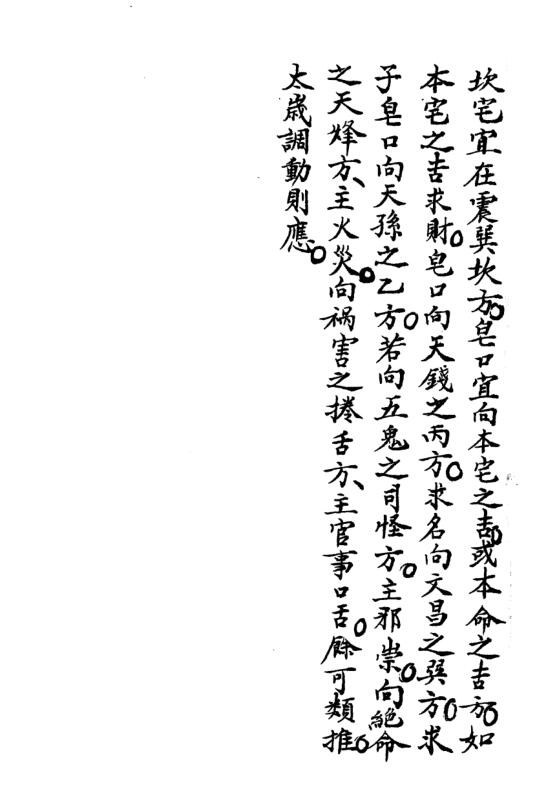 坎宅宜在震巽坎方。皂口宜向本宅之吉。或本命之吉方。如
本宅之吉求財。皂口向天錢之丙方。求名向文昌之巽方。求
子皂口向天孫之乙方。若向五鬼之司怪方。主邪祟。向絕命
之天烽方、主火災。向禍害之捲舌方、主官事口舌。餘可類推。
太歲調動則應。